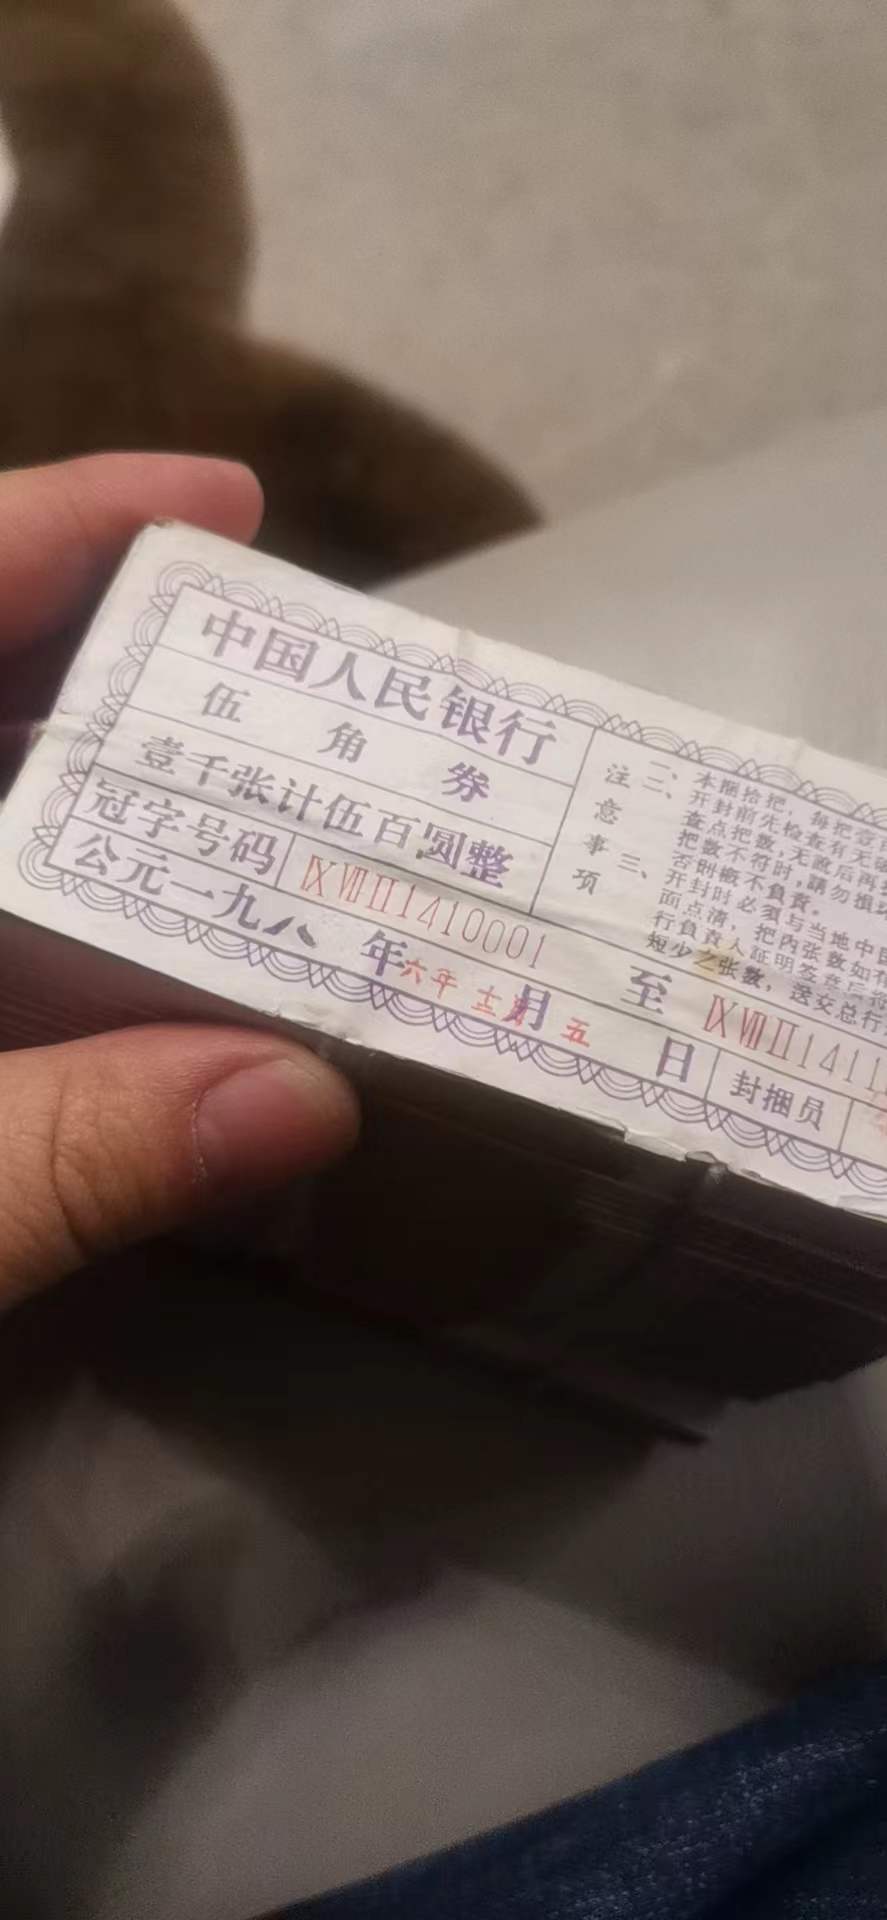 中国人民银行
伍角券
壹千张计伍百圆整
冠字号码 ⅨⅦⅡ1410001 至 ⅨⅦⅡ1411
公元一九八 年六年 月 五 日 封捆员
注意事项
一、本捆拾把，每把壹百
二、开封前先检查有无破
查点把数，无讹后再拆
把数不符时，請勿损坏
否则概不負責。
三、开封时必须与当地中国
面点清，把内张数如有
行負責人証明签章后将
短少之张数，送交总行